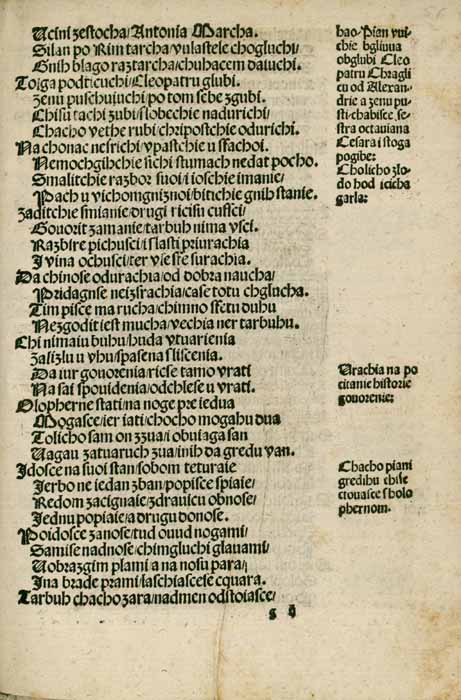 Ucini zestocha/Antonia Marcha.
Silan po Rim tarcha/vulastele chogluchi/
Gnih blago raztarcha/chuhacem daiuchi.
Toiga podticuchi/Cleopatru glubi.
Zenu puschujuchi/po tom sebe zgubi.
Chisu tachi zubi/slobechie nadurichi/
Chacho vethe rubi/chripostchie odurichi.
Na chonac nesrichi/vpastchie u sfachoi.
Nemochgibchie sichi stumach nedat pocho.
Smalitchie razbor suoi/i ioschie imanie/
Pach u vichomgniznoi/bitichie gnih stanie.
Zaditchie smianie/drugi ricisu cussci/
Gouorit zamanie/tarbuh nima vsci.
Razbire pichusci/i slasti priurachia
I vina ochusci/ter vse ste surachia.
Da chinose odurachia/od dobra naucha/
Pridagnse neizsrachia/case totu chglucha.
Tim pisce ma rucha/chimno sktu duhu
Nezgodit iest mucha/vechia ner tarbuhu.
Chi nimaiu buhu/huda vtuarienia
Zalizlu u vhu/spasena sliscenia.
Da iur gouorenia/ricse tamo vrati
Na sai spouidenia/odchlese u vrati.
Olopherne stati/na noge pre iedua
Mogasce/ier iati/chocho mogahu dua
Tolicho sam on zzua/i obuiaga san
Uagau zatuaruch zua/inih da gredu van.
Idosce na suoi stan/sobom teturaie
Jerbo ne iedan zban/popisce spiaie/
Redom zacignaie/zdrauicu obnose/
Jednu popiaie/a drugu donose.
Poidosce zanose/tud ouud nogami/
Samise nadnose/chimgluchi glauami/
Uobrazgim plami a na nosu para/
Ina brade prami/saschiascese cquara.
Tarbuh chacho zara/nadmen odstoiasce/
bao. Pian vui-
chie bgliuua
obglubi Cleo
patru Chragli
cu od Alexan-
drie a zenu pu-
sti-chabisce se-
stra octauiana
Cesara i stoga
pogibe:
Cholicho zlo-
do hod icicha
garla:
Urachia na po
citanie historie
gouorenie:
Chacho piani
gredihu chise
ctouasce s holo
phernom.